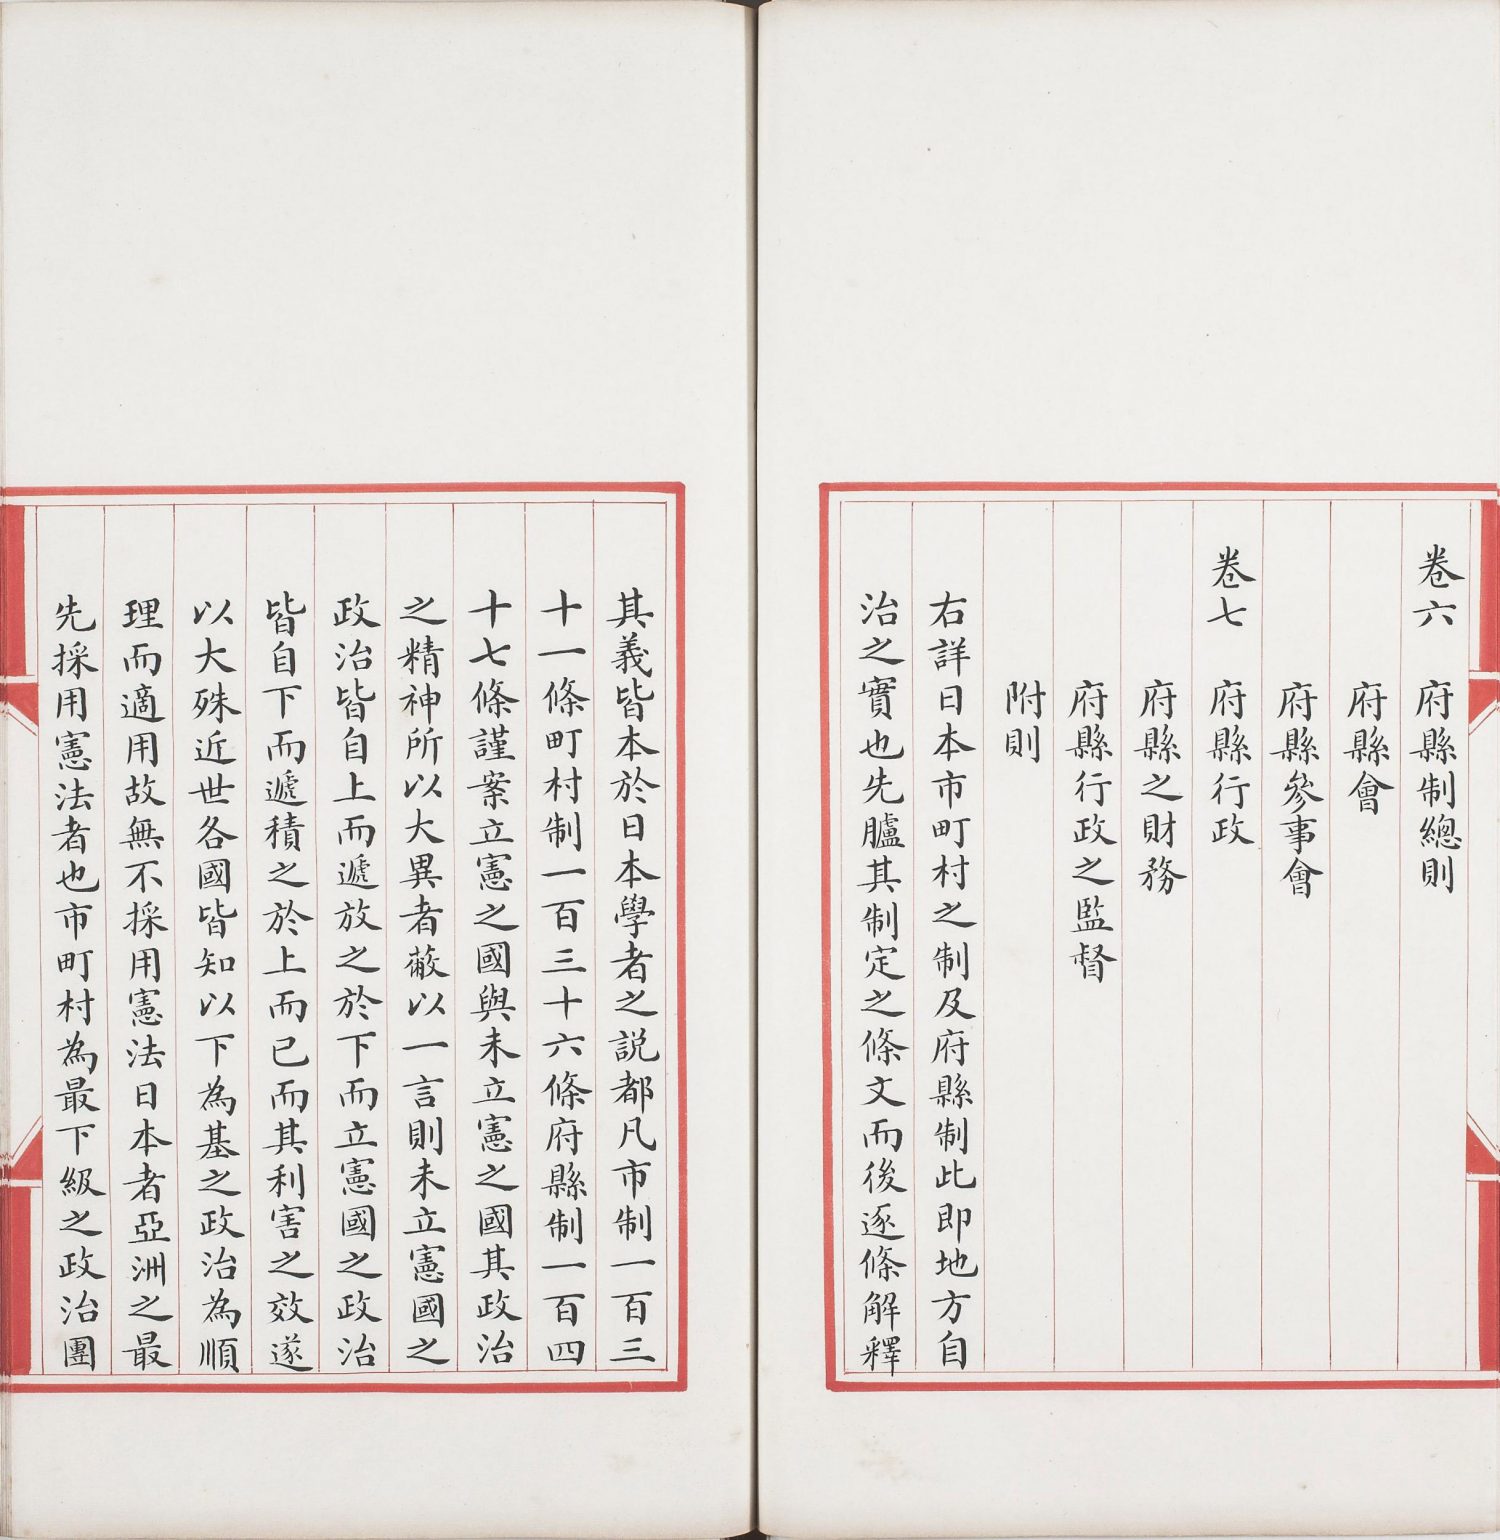 卷六　府縣制總則
府縣會
府縣參事會
卷七　府縣行政
府縣之財務
府縣行政之監督
附則
右詳日本市町村之制及府縣制此即地方自
治之實也先臚其制定之條文而後逐條解釋
其義皆本於日本學者之説都凡市制一百三
十一條町村制一百三十六條府縣制一百四
十七條謹案立憲之國與未立憲之國其政治
之精神所以大異者蔽以一言則未立憲國之
政治皆自上而遞放之於下而立憲國之政治
皆自下而遞積之於上而已而其利害之效遂
以大殊近世各國皆知以下為基之政治為順
理而適用故無不採用憲法日本者亞洲之最
先採用憲法者也市町村為最下級之政治團